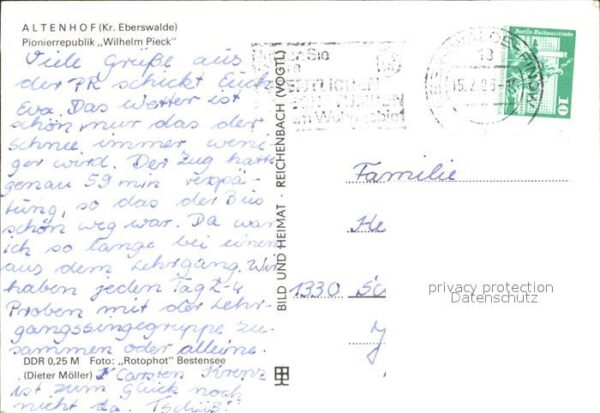 ALTENHOF (Kr. Eberswalde)
Pionierrepublik „Wilhelm Pieck"
Viele Grüße aus
der PR schickt Euch
Eva. Das Wetter ist
schön nur das der
schnee immer weni-
ger wird. Der Zug hatte
genau 59 min verspä-
tung, so das der Bus
schon weg war. Da war
ich so lange bei einem
aus dem Lehrgang. Wir
haben jeden Tag 2-4
Proben mit der Lehr-
gangssingegruppe zu-
sammen oder alleine.
DDR 0,25 M Foto: „Rotophot" Bestensee
(Dieter Möller)
Carsten Krenz
ist zum Glück noch
nicht da. Tschüß!
BILD UND HEIMAT · REICHENBACH (VOGTL)
Sie
im Wohngebiet
13
Berlin, Rathausstraße
DDR
10
Familie
He
1330 Sc
privacy protection
Datenschutz